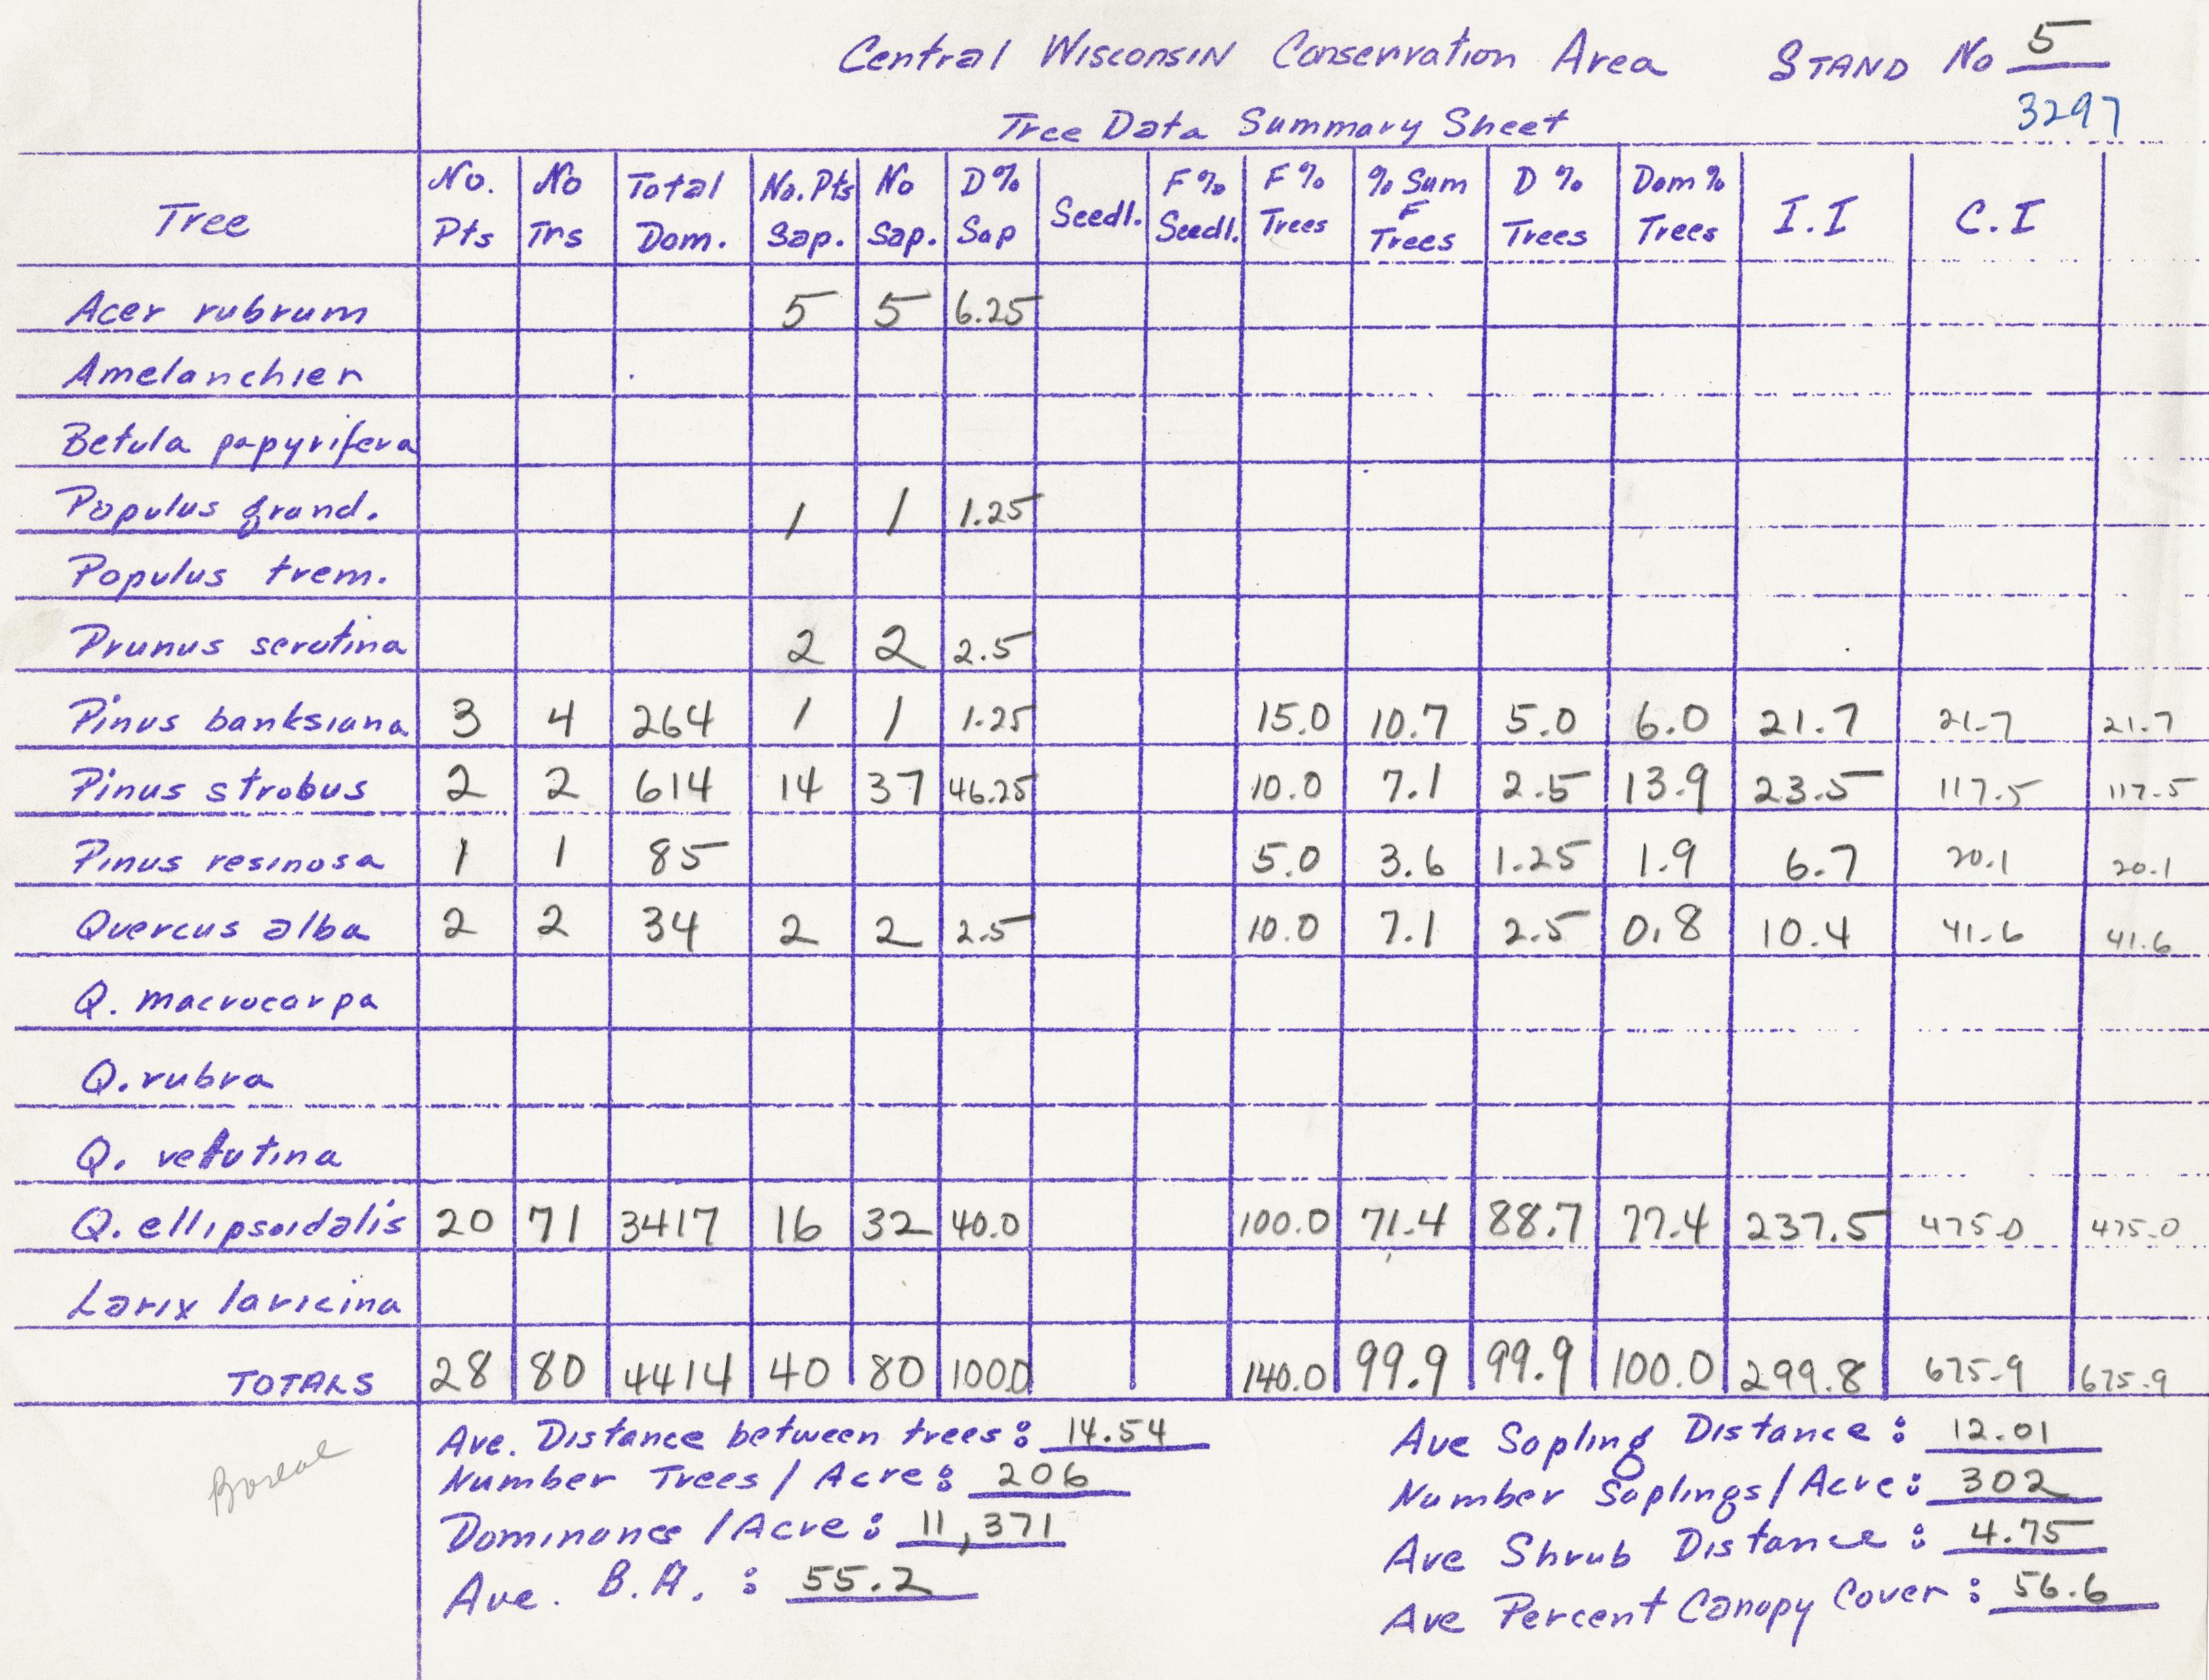 Central Wisconsin Conservation Area STAND No 5
3297
Tree Data Summary Sheet
Tree | No. Pts | No Trs | Total Dom. | No. Pts Sap. | No Sap. | D% Sap | Seedl. | F% Seedl. | F% Trees | % Sum F Trees | D % Trees | Dom % Trees | I.I | C.I
Acer rubrum 5 5 6.25
Amelanchier
Betula papyrifera
Populus grand. 1 1 1.25
Populus trem.
Prunus serotina 2 2 2.5
Pinus banksiana 3 4 264 1 1 1.25 15.0 10.7 5.0 6.0 21.7 21.7 21.7
Pinus strobus 2 2 614 14 37 46.25 10.0 7.1 2.5 13.9 23.5 117.5 117.5
Pinus resinosa 1 1 85 5.0 3.6 1.25 1.9 6.7 20.1 20.1
Quercus alba 2 2 34 2 2 2.5 10.0 7.1 2.5 0.8 10.4 41.6 41.6
Q. macrocarpa
Q. rubra
Q. velutina
Q. ellipsoidalis 20 71 3417 16 32 40.0 100.0 71.4 88.7 77.4 237.5 475.0 475.0
Larix laricina
TOTALS 28 80 4414 40 80 100.0 140.0 99.9 99.9 100.0 299.8 675.9 675.9
Boreal
Ave. Distance between trees: 14.54
Number Trees / Acre: 206
Dominance / Acre: 11,371
Ave. B.A. : 55.2
Ave Sapling Distance: 12.01
Number Saplings / Acre: 302
Ave Shrub Distance: 4.75
Ave Percent Canopy Cover: 56.6